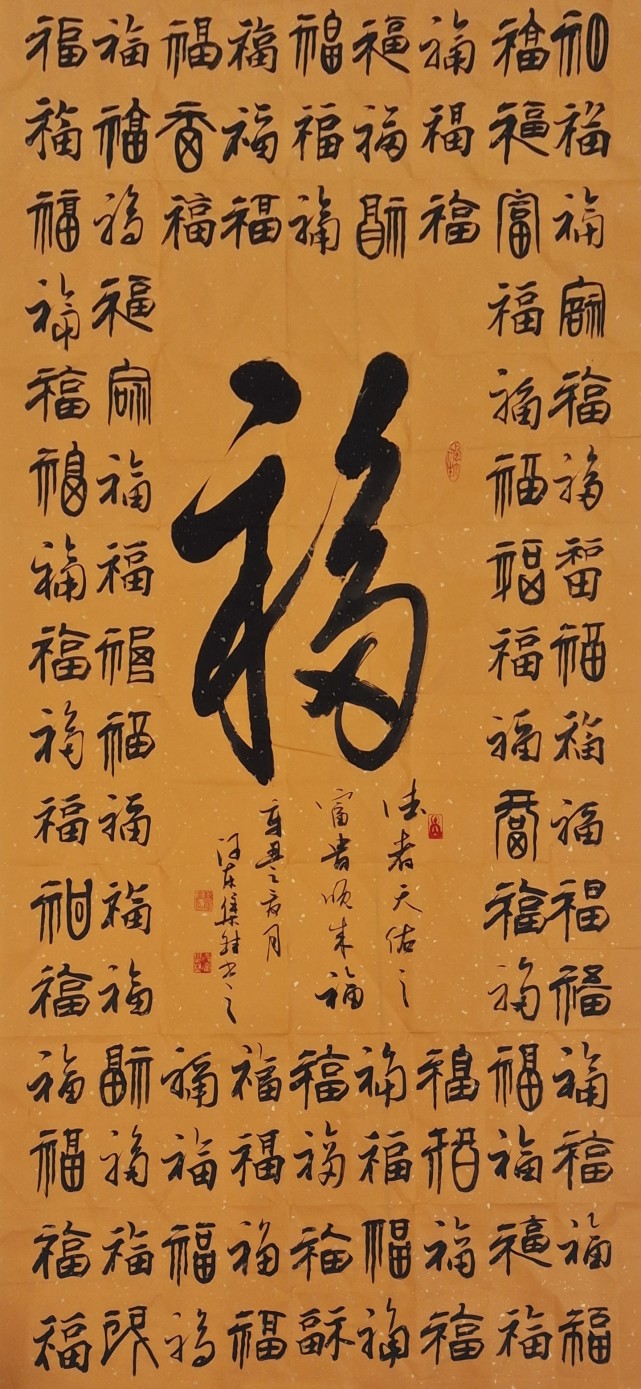 福福福福福福福福福
福福福福福福福福福
福福福福福福福福福
福福 福福
福福 福福
福福 福福
福福 福福
福福 福福
福福 福福
福福 福福
福福 福福
福福 福福
福
德者天佑之
富贵顺 福
辛丑之夏月
书之
福福福福福福福福福
福福福福福福福福福
福福福福福福福福福
福福福福福福福福福